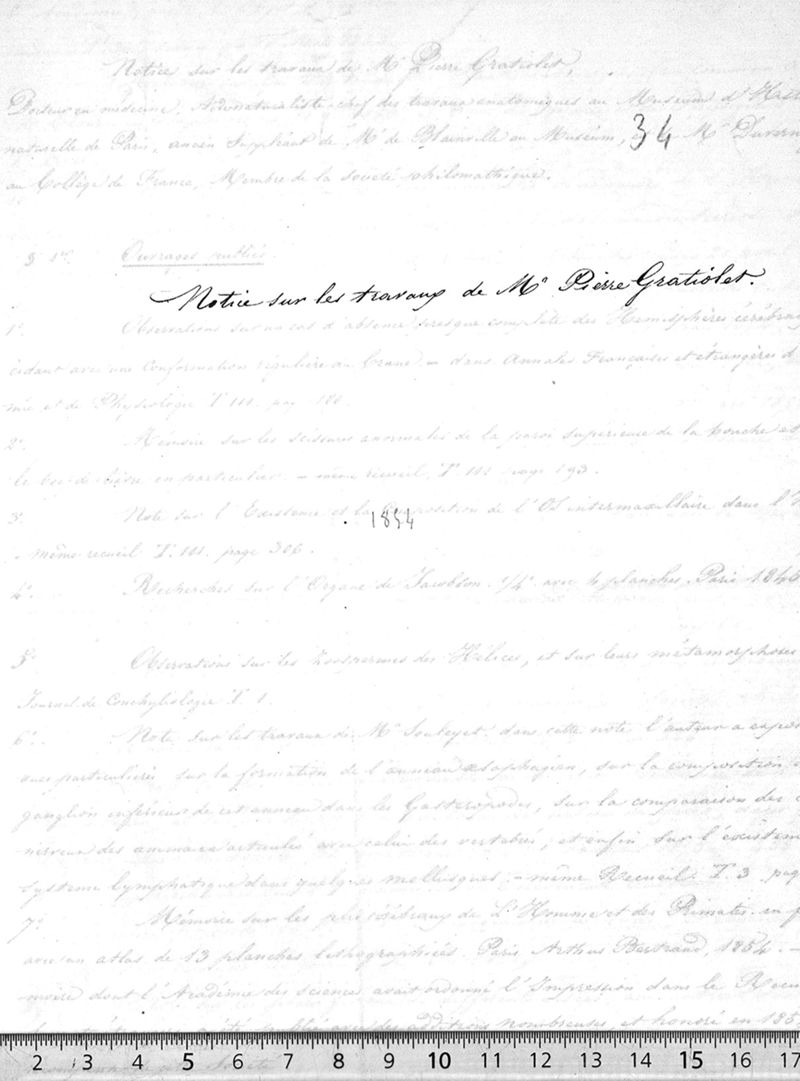 Notice sur les travaux de Mr Pierre Gratiolet,
Docteur en médecine, Aide naturaliste chef des travaux anatomiques au Museum d'
naturelle de Paris, ancien Suppléant de Mr de Blainville au Museum, Mr
34
au Collège de France, Membre de la société philomathique.
§ 1er. Ouvrages publiés
Notice sur les travaux de Mr Pierre Gratiolet.
1° Observations sur un cas d'absence presque complète des Hémisphères
avec une conformation régulière du Crane = dans Annales Françaises et étrangères
et de Physiologie T. III. pag
2° Mémoire sur les scissures anormales de la paroi supérieure de la bouche
le bec-de-lièvre en particulier. = même recueil, T. III page 193.
3° Note sur l'Existence et la Composition de l'Os intermaxillaire dans l'
même recueil T. III. page 306.
1854
4° Recherches sur l'Organe de Jacobson. avec 4 planches, Paris 1845
5° Observations sur les zoospermes des Hélices, et sur leurs métamorphoses
Journal de Conchyliologie T. 1.
6° Note sur les travaux de Mr Souleyet. dans cette note l'auteur a
vues particulières sur la formation de l'anneau œsophagien, sur la composition
ganglion inférieur de cet anneau dans les Gasteropodes, sur la comparaison des
nerveux des animaux articulés avec celui des vertebrés, et enfin sur l'
système lymphatique dans quelques mollusques. = même Recueil. T. 3. pag
7° Mémoire sur les plis cérébraux de L'Homme et des Primates. in
avec un atlas de 13 planches lithographiées. Paris, Arthus Bertrand, 1854. =
moire dont l'Académie des sciences avait ordonné l'Impression dans le
a été publié avec des additions nombreuses, et honoré en
2 3 4 5 6 7 8 9 10 11 12 13 14 15 16 17